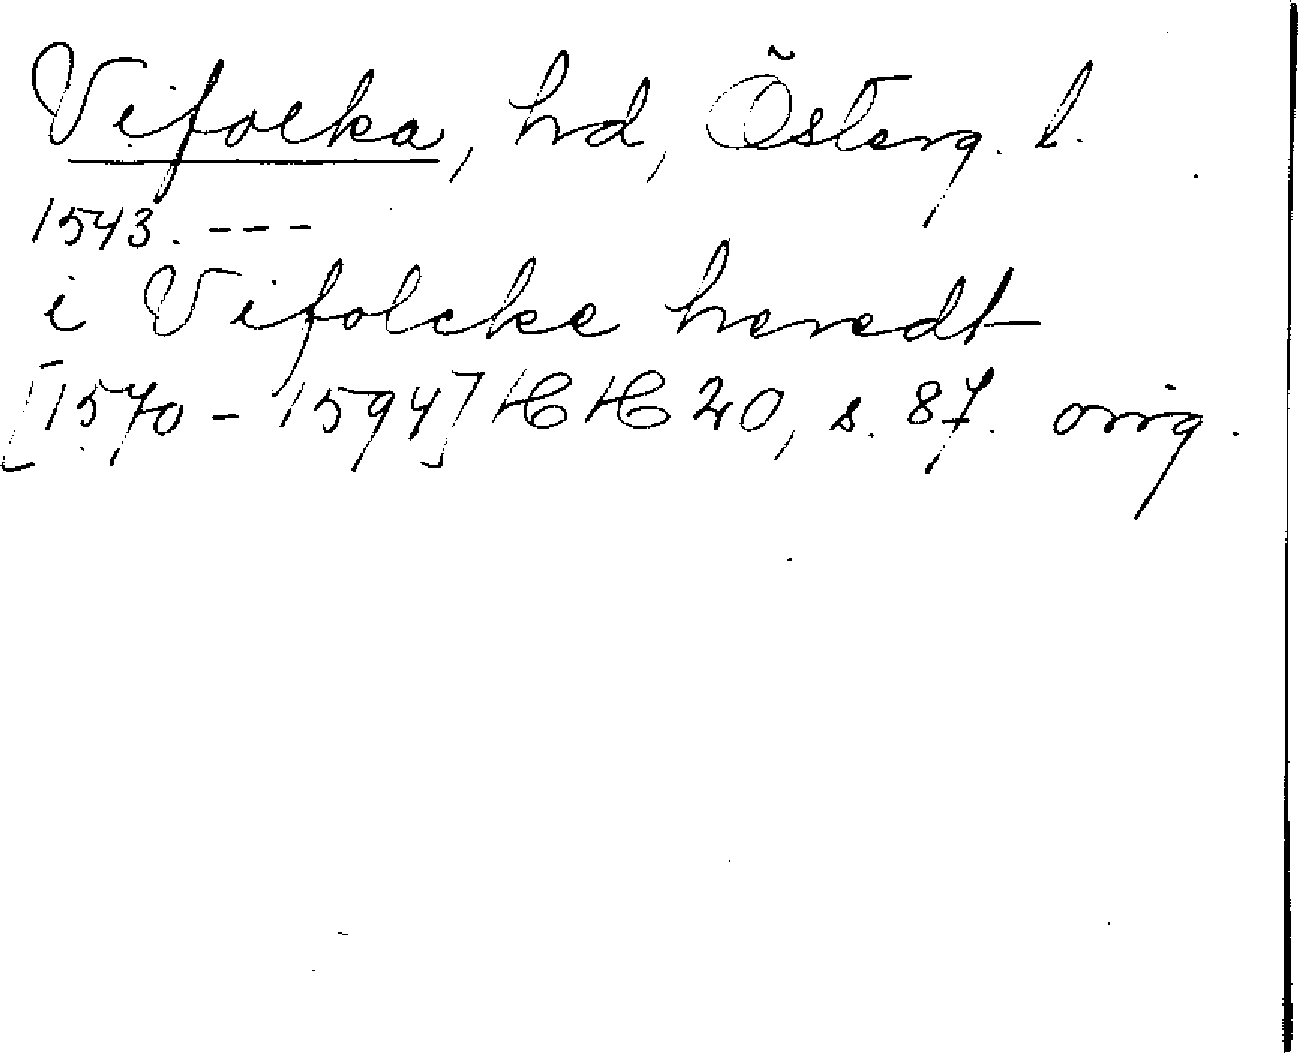 Vifolka, hd, Österg. l.
1543. ---
i Vifolcke heredt
[1570-1594] HH 20, s. 87. orig.